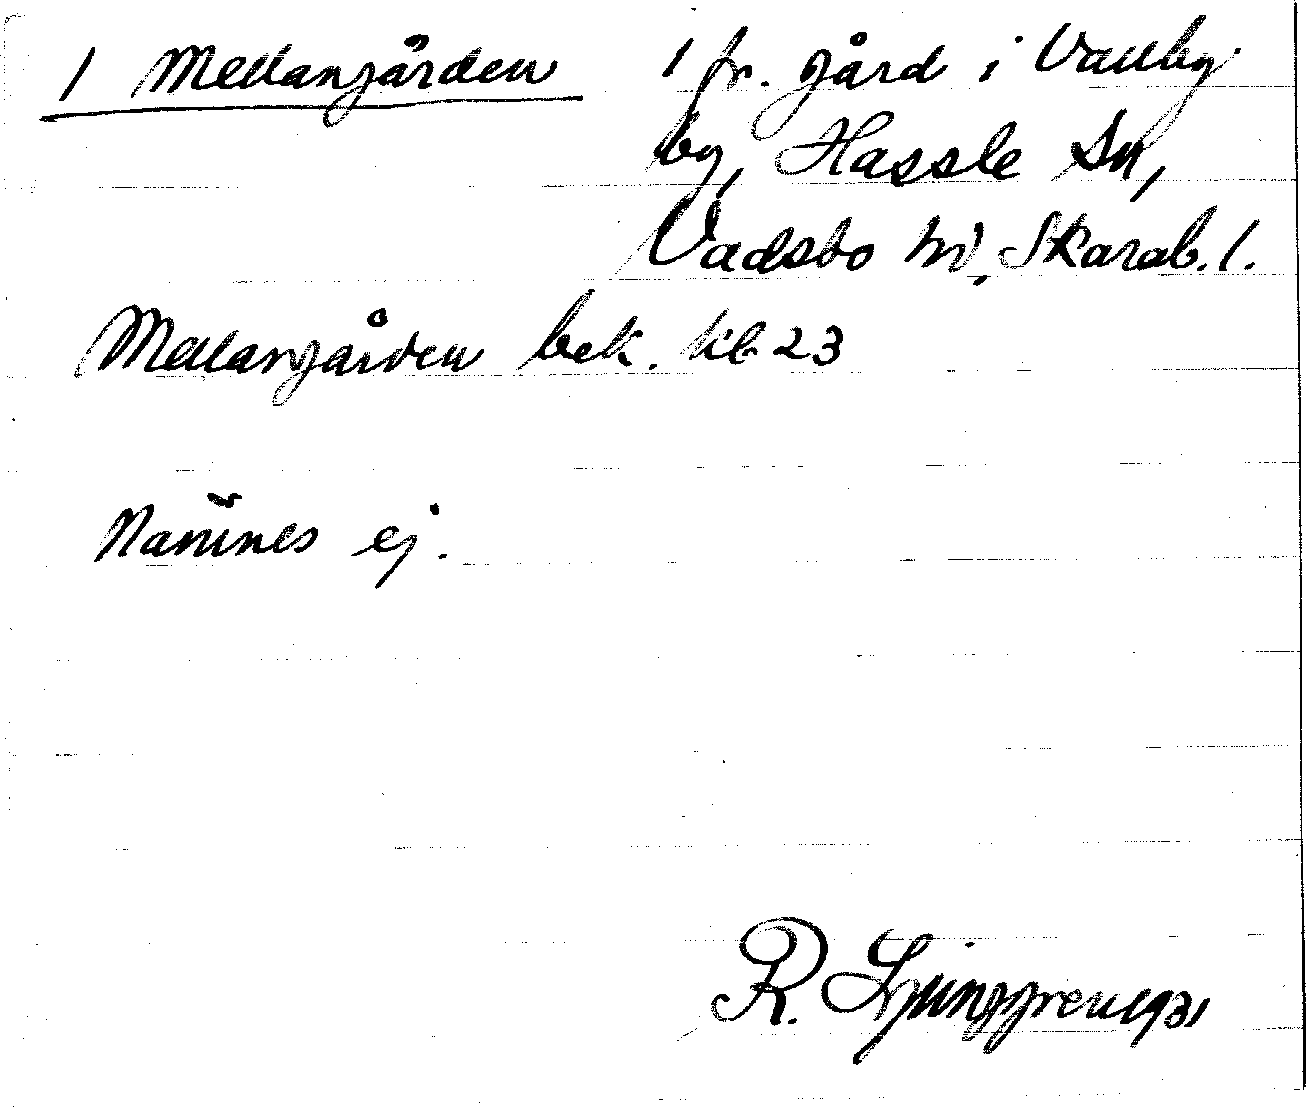 1 Mellangården
1 fr. gård i Vallby
by, Hassle Sn,
Vadsbo hd, Skarab. l.
Mellangården bek. kb 23
Nämnes ej.
R. Ljunggren 1931